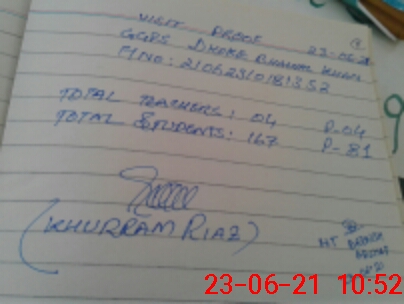 VISIT PROOF
23-06-21
GGPS DHOKE
F/NO: 21062310181352
TOTAL TEACHERS: 04 P-04
TOTAL STUDENTS: 167 P-81
(KHURRAM RIAZ)
HT
23-06-21 10:52